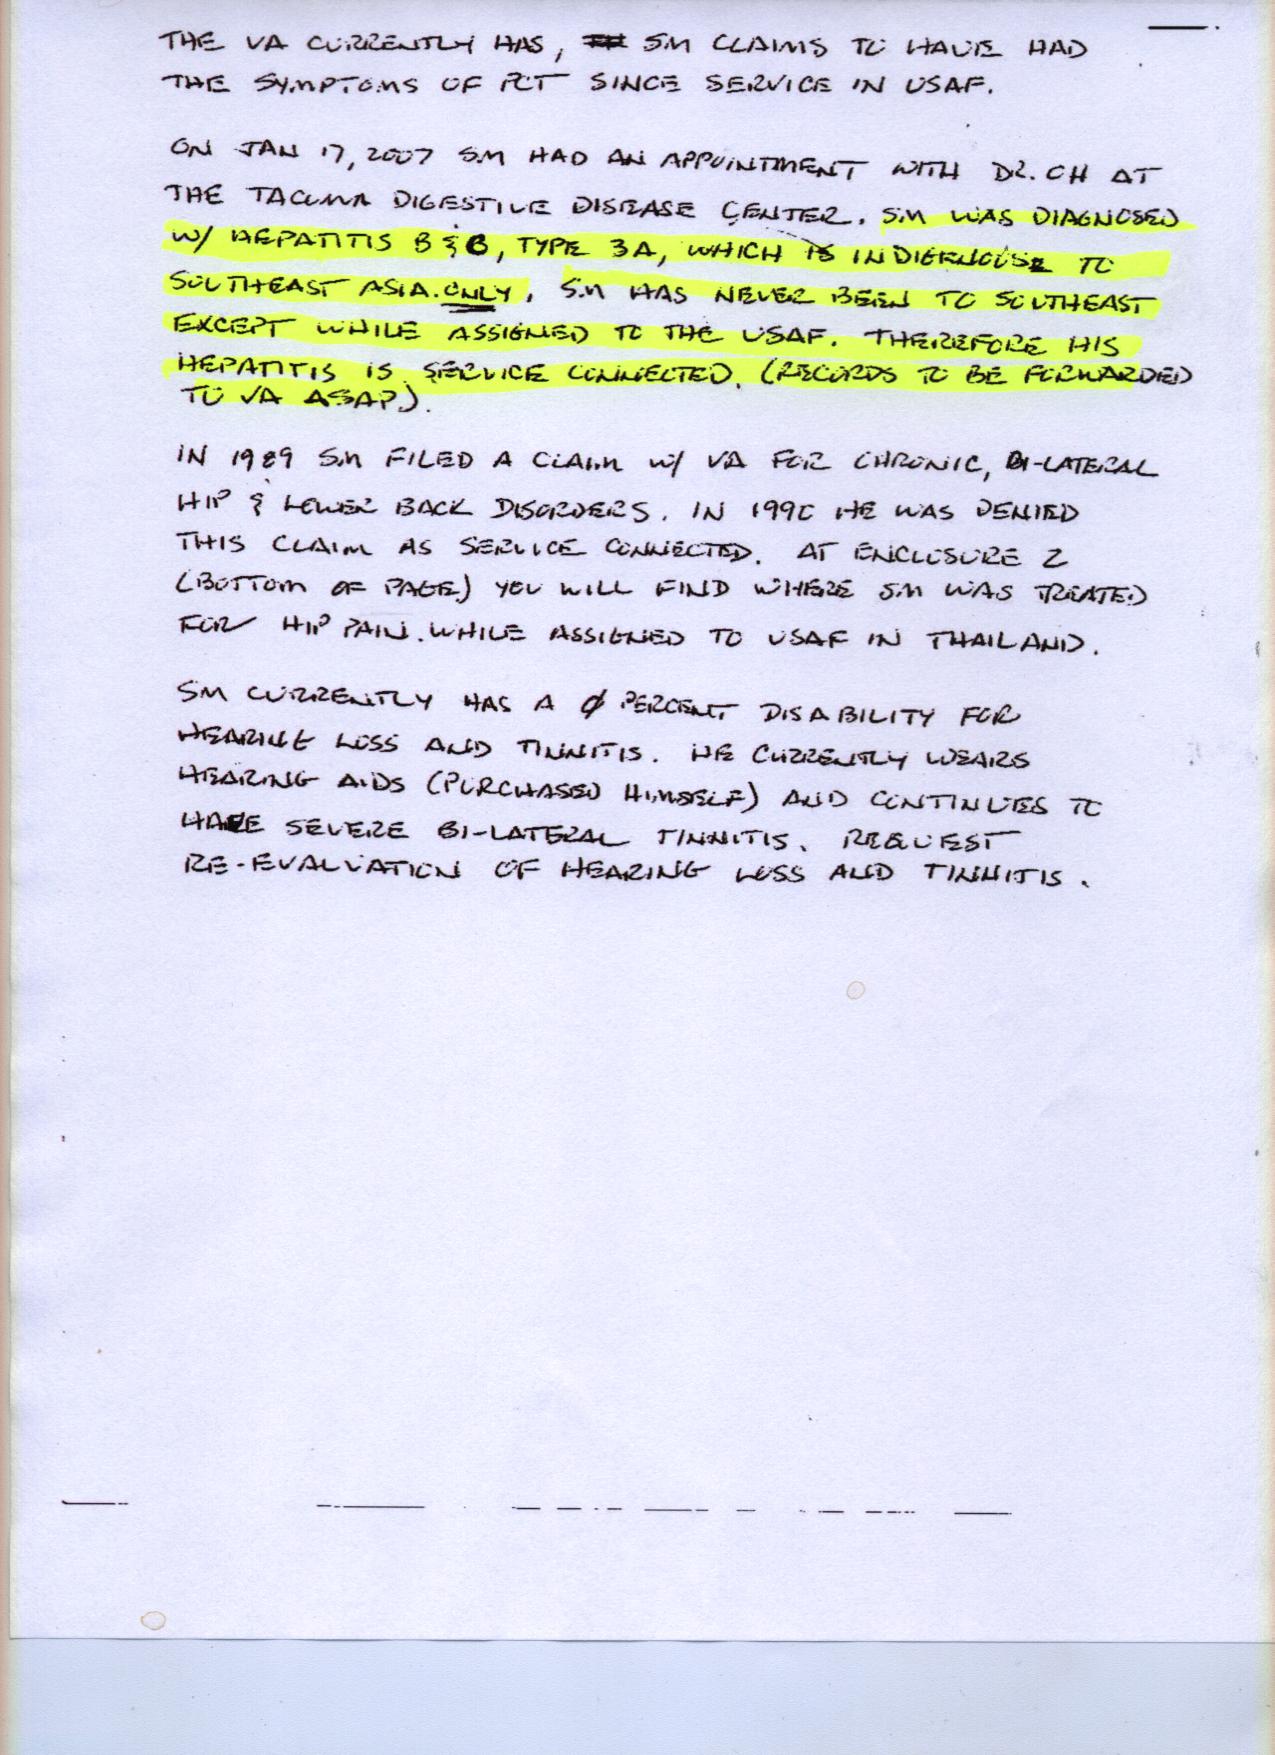 THE VA CURRENTLY HAS, SM CLAIMS TO HAVE HAD
THE SYMPTOMS OF PCT SINCE SERVICE IN USAF.
ON JAN 17, 2007 SM HAD AN APPOINTMENT WITH DR. CH AT
THE TACOMA DIGESTIVE DISEASE CENTER. SM WAS DIAGNOSED
W/ HEPATITIS B & B, TYPE 3A, WHICH IS INDIGENOUSE TO
SOUTHEAST ASIA ONLY. SM HAS NEVER BEEN TO SOUTHEAST
EXCEPT WHILE ASSIGNED TO THE USAF. THEREFORE HIS
HEPATITIS IS SERVICE CONNECTED. (RECORDS TO BE FORWARDED
TO VA ASAP).
IN 1989 SM FILED A CLAIM W/ VA FOR CHRONIC, BI-LATERAL
HIP & LOWER BACK DISORDERS. IN 1990 HE WAS DENIED
THIS CLAIM AS SERVICE CONNECTED. AT ENCLOSURE 2
(BOTTOM OF PAGE) YOU WILL FIND WHERE SM WAS TREATED
FOR HIP PAIN WHILE ASSIGNED TO USAF IN THAILAND.
SM CURRENTLY HAS A 0 PERCENT DISABILITY FOR
HEARING LOSS AND TINNITIS. HE CURRENTLY WEARS
HEARING AIDS (PURCHASED HIMSELF) AND CONTINUES TO
HAVE SEVERE BI-LATERAL TINNITIS. REQUEST
RE-EVALUATION OF HEARING LOSS AND TINNITIS.